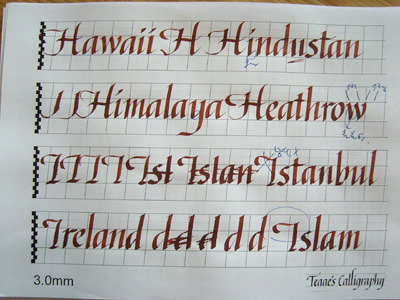 Hawaii H Hindustan
I I Himalaya Heathrow
I I I I Ist Islan Istanbul
Ireland d d d d d Islam
3.0mm Teaae's Calligraphy